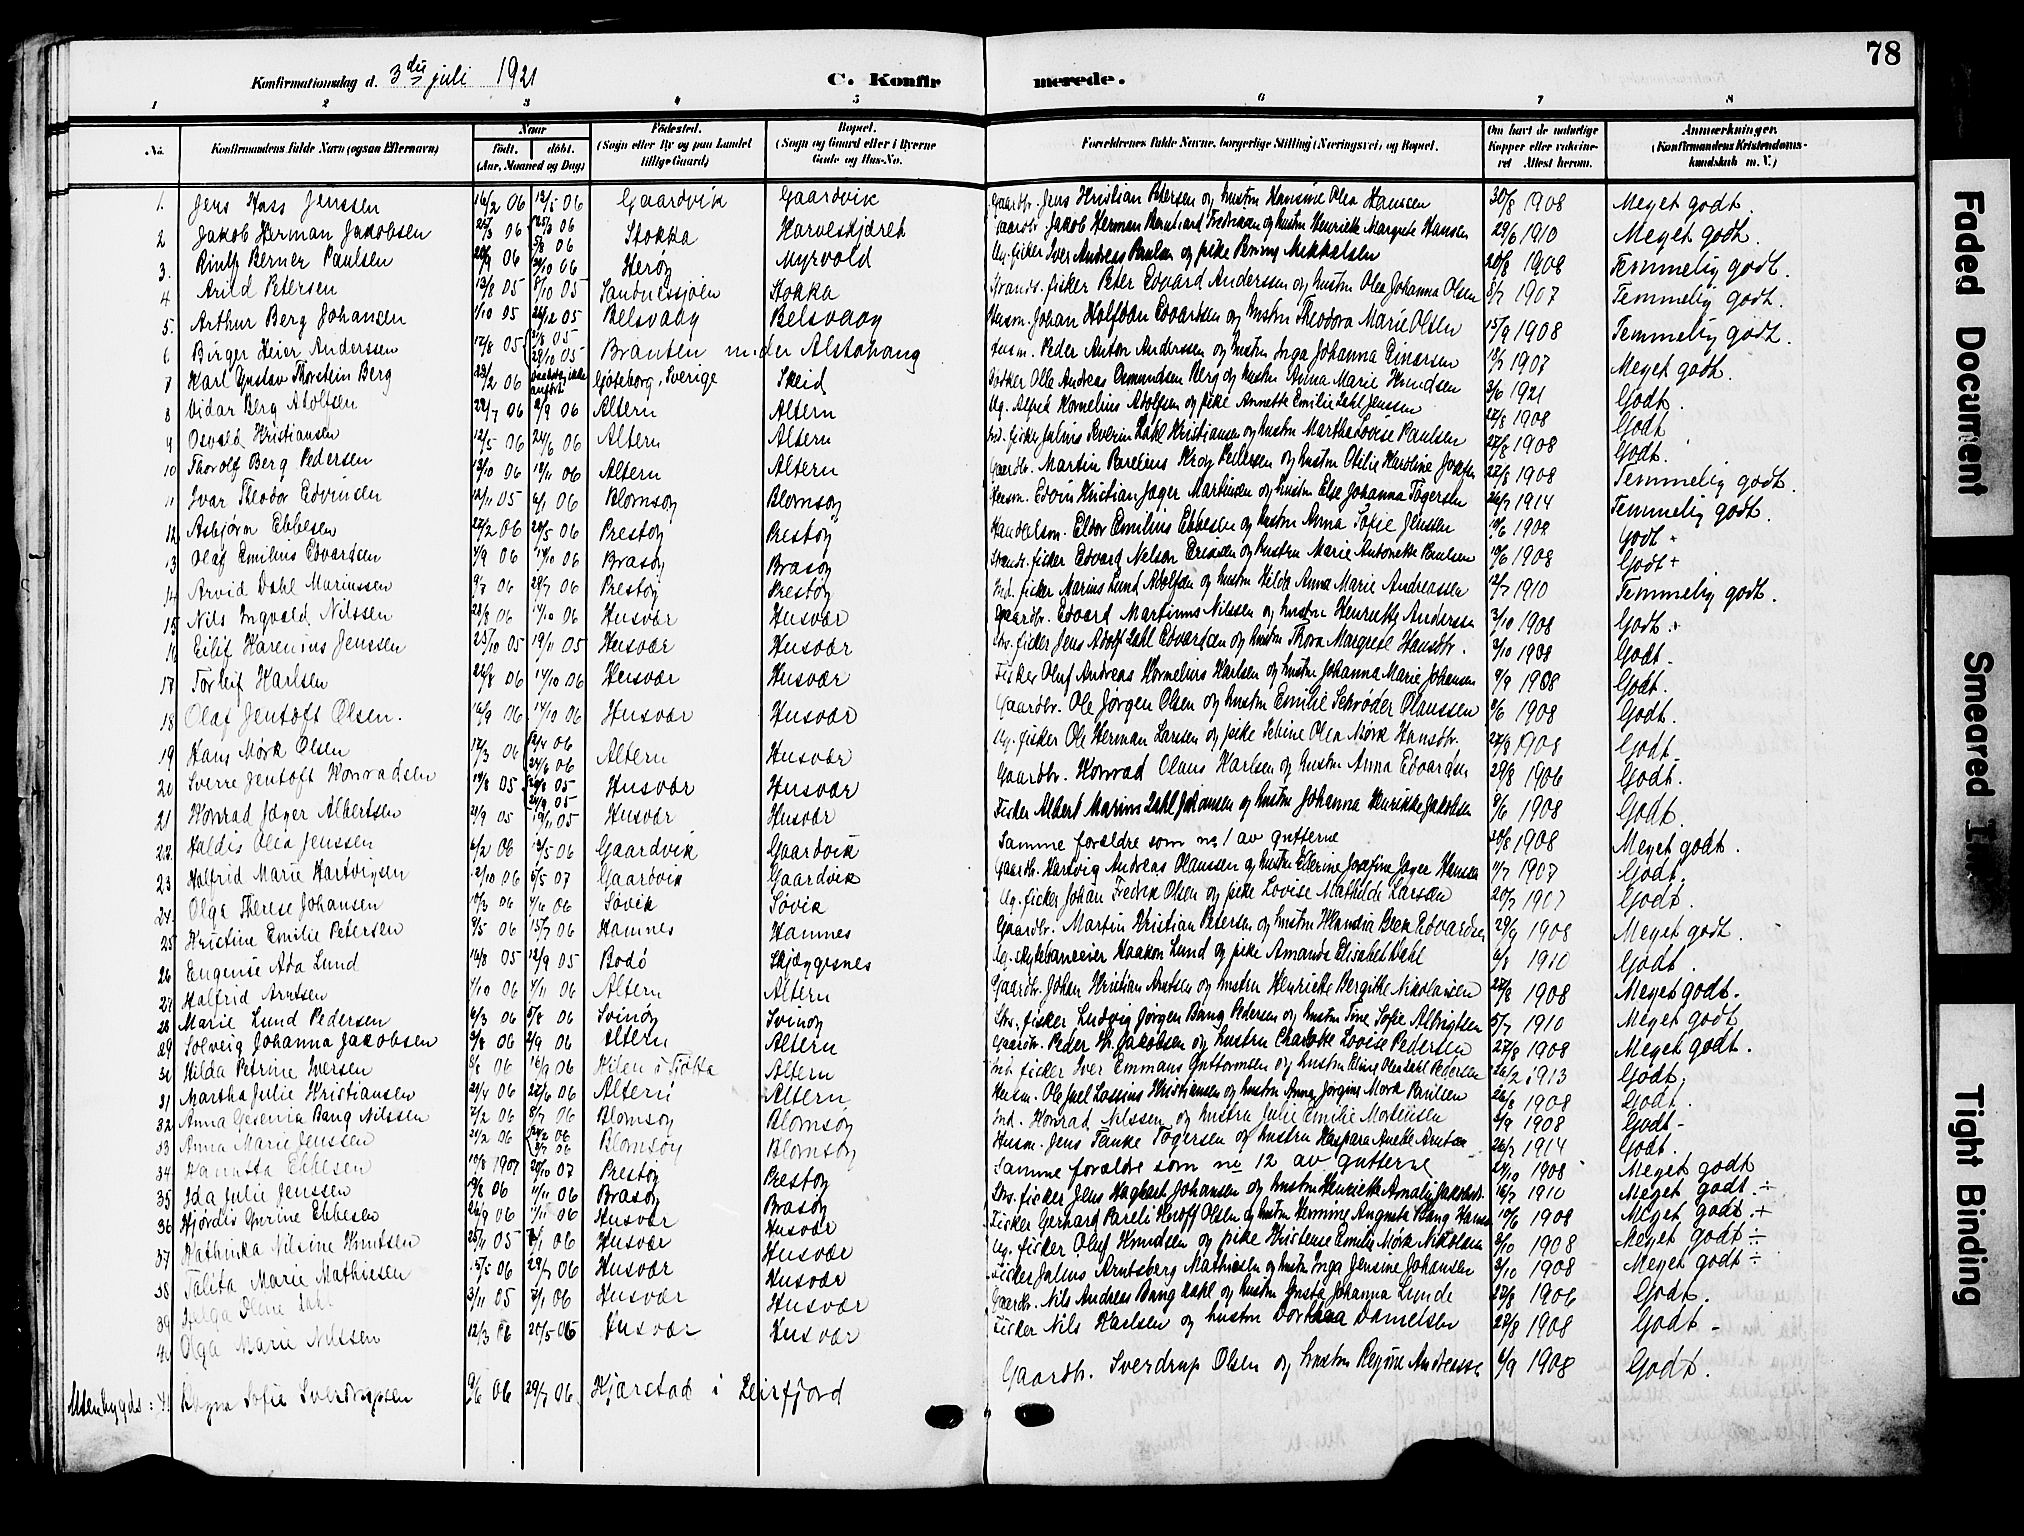 78
Konfirmationsdag d. 3die juli 1921 C. Konfirmerede.
1 2 3 4 5 6 7 8
No. Konfirmandens fulde Navn (ogsaa Efternavn) Naar født. døbt. (Aar, Maaned og Dag) Fødested. (Sogn eller By og paa Landet tillige Gaard) Bopæl. (Sogn og Gaard eller i Byerne Gade og Hus-No. Forældrenes fulde Navne, borgerlige Stilling (Næringsvei) og Bopæl. Om havt de naturlige Kopper eller vakcineret Attest herom. Anmærkninger. (Konfirmandens Kristendomskundskab m. V.)
1. Jens Hass Jenssen 16/2 06 13/5 06 Gaardvik Gaardvik Gaardbr. Jens Kristian Petersen og hustru Hansine Olea Hansen 30/8 1908 Meget godt.
2 Jakob Herman Jakobsen 25/3 06 25/3 06 5/8 06 Stokka Harveskjæret Gaardbr. Jakob Herman Bernhard Fredriksen og hustru Henriette Margrete Hansen 29/6 1910 Meget godt.
3. Rinlf Berner Paulsen 06 06 Herøy Myrvold Ug. fisker Iver Andreas Paulsen og pike Benning Mikkalsen 20/8 1908 Temmelig godt.
4 Arild Petersen 13/8 05 8/10 05 Sandnessjøen Stokka Strands. fisker Peter Edvard Anderssen og hustru Olea Johanna Olsen 8/7 1907 Temmelig godt.
5. Arthur Berg Johansen 1/10 05 26/12 05 Belsvaag Belsvaag Husm. Johan Halfdan Edvardsen og hustru Theodora Marie Olsen 15/9 1908 Temmelig godt.
6 Birger Heier Anderssen 17/8 05 3/8 05 29/10 05 Brauten under Alstahaug Husm. Peder Anton Anderssen og hustru Inga Johanna Einarsen 18/7 1907 Meget godt.
7 Karl Gustav Thorstein Berg 23/2 06 Göteborg, Sverige Skeid Olle Andreas Osmundsen Berg og hustru Anna Marie Knudsen 3/6 1921 Godt.
8 Vidar Berg Adolfsen 22/7 06 2/9 06 Altern Altern Ug. Alfred Kornelius Adolfsen og pike Annette Emilie Dahl Jenssen 27/8 1908 Godt
9 Osvald Kristiansen 12/5 06 24/6 06 Altern Altern Ind. fisker Julius Severin Dahl Kristiansen og hustru Martha Lovise Paulsen 27/8 1908 Godt.
10 Thorolf Berg Pedersen 13/10 06 18/11 06 Altern Altern Gaardbr. Martin Parelius Krog Pedersen og hustru Otilie Karoline Josefsen 22/8 1908 Temmelig godt.
11 Ivar Theodor Edvinsen 12/11 05 6/1 06 Blomsøy Blomsøy Husm. Edvin Kristian Jæger Martinsen og hustru Else Johanna Tøgersen 26/7 1914 Temmelig godt.
12 Asbjørn Ebbesen 27/2 06 24/5 06 Prestøy Prestøy Handelsm. Eldor Emilius Ebbesen og hustru Anna Sofie Jenssen 19/6 1908 Godt -
13 Olaf Emilius Edvardsen 4/9 06 14/10 06 Brasøy Brasøy Strands. fisker Edvard Nelson Erikssen og hustru Marie Antonette Paulsen 19/6 1908 Godt +
14 Arvid Dahl Mariussen 9/3 06 29/7 06 Prestøy Prestøy Ind. fisker Marius Lund Adolfsen og hustru Hilda Anna Marie Andreassen 12/7 1910 Temmelig godt.
15 Nils Ingvald Nilssen 28/8 06 14/10 06 Husvær Husvær Gaardbr. Edvard Martinus Nilssen og hustru Henriette Anderssen 3/10 1908 Godt ÷
16 Eilif Harenius Jenssen 25/10 05 19/11 05 Husvær Husvær Str. fisker Jens Adolf Dahl Edvardsen og hustru Thora Margrete Hansdtr. 3/10 1908 Godt
17 Torleif Karlsen 26/8 06 14/10 06 Husvær Husvær Fisker Oluf Andreas Kornelius Karlsen og hustru Johanna Marie Johansen 9/9 1908 Godt.
18 Olaf Jentoft Olsen. 16/9 06 14/10 06 Husvær Husvær Gaardbr. Ole Jørgen Olsen og hustru Emilie Schrøder Olaussen 8/6 1908 Godt.
19 Hans Mørk Olsen 17/3 06 12/4 06 24/6 06 Altern Husvær Ug. fisker Ole Herman Larssen og pike Sebine Olea Mørk Hansdtr. 27/8 1908 Godt
20 Sverre Jentoft Konradsen 19/8 05 20/8 05 24/9 05 Husvær Husvær Gaardbr. Konrad Olaus Karlsen og hustru Anna Edvardsen 29/8 1906 Godt.
21 Konrad Jæger Albertsen 21/9 05 19/11 05 Husvær Husvær Fisker Albert Marius Dahl Johansen og hustru Johanna Henrikke Jakobsen 9/6 1908 Godt.
22. Haldis Olea Jenssen 6/2 06 13/5 06 Gaardvik Gaardvik Samme forældre som no 1 av gutterne 30/8 1908 Meget godt.
23 Halfrid Marie Hartvigsen 12/10 06 5/5 07 Gaardvik Gaardvik Gaardbr. Hartvig Andreas Olaussen og hustru Ellerine Josefine Jæger Hansen 11/7 1907 Godt.
24. Olga Therese Johansen 10/3 06 4/6 06 Søvik Søvik Ug. fisker Johan Fredrik Olsen og pike Lovise Mathilde Larsen 20/7 1907 Godt.
25 Kristine Emilie Petersen 9/5 06 15/7 06 Hamnes Hamnes Gaardbr. Martin Kristian Petersen og hustru Klaudia Edvardsen 29/9 1908 Meget godt.
26 Eugenie Ada Lund 16/8 05 12/9 05 Bodø Skjæggesnes Ug. Haakon Lund og pike Amanda Elisabet Dahl 6/8 1910 Godt.
27 Halfrid Arntsen 1/10 06 4/11 06 Altern Altern Gaardbr. Johan Kristian Arntsen og hustru Henriette Bergitte Nikolaisen 22/8 1908 Meget godt.
28 Marie Lund Pedersen 6/3 06 5/8 06 Svinøy Svinøy Str. fisker Ludvig Jørgen Bang Pedersen og hustru Tine Sofie Albrigtsen 5/7 1910 Meget godt
29 Solveig Johanna Jakobsen 3/8 06 2/9 06 Altern Altern Gaardbr. Peder Kr. Jakobsen og hustru Charlotte Lovise Pedersen 27/8 1908 Meget godt.
30 Hilda Petrine Iversen 8/8 06 16/9 06 Hilen i Tjøtta Altern Ind. fisker Iver Emmanus Guttormsen og hustru Pedersen 26/2 1913 Godt.
31 Martha Julie Kristiansen 24/4 06 22/6 06 Altern Altern Husm. Ole Juel Lassius Kristiansen og hustru Anna Jørgine Mørk Paulsen 26/8 1908 Godt.
32 Anna Gesevia Bang Nilssen 7/2 06 8/7 06 Blomsøy Blomsøy Ind. Konrad Nilssen og hustru Julie Emilie Mortensen 5/9 1908 Godt -
33 Anna Marie Jenssen 21/2 06 24/2 06 8/7 06 Blomsøy Blomsøy Husm. Jens Tanke Tøgersen og hustru Kaspara Anette Arntsen 26/7 1914 Godt.
34 Hanetta Ebbesen 10/8 1907 20/10 07 Prestøy Prestøy Samme forældre som no 12 av gutterne 24/10 1908 Meget godt
35 Ida Julie Jenssen 19/8 06 11/11 06 Brasøy Brasøy Str. fisker Jens Hagbart Johansen og hustru Henriette Amalie Jakobsdtr. 16/7 1910 Meget godt. ÷
36 Hjørdis Gurine Ebbesen 26/9 06 11/11 06 Husvær Husvær Fisker Gerhard Pareli Hroff Olsen og hustru Hermine Augusta Bang Hansen 10/6 1908 Meget godt. +
37 Kathinka Nilsine Knutsen 25/11 05 6/1 06 Husvær Husvær Ug. fisker Oluf Knudsen og pike Kristense Emilie Mørk Nikolaisen 3/10 1908 Meget godt ÷
38 Talita Marie Mathiesen 15/5 06 29/7 06 Husvær Husvær Fisker Julius Arntsberg Mathiesen og hustru Inga Jensine Johansen 3/10 1908 Meget godt ÷
39 Helga Olene Dahl 3/11 05 7/1 06 Husvær Husvær Gaardbr. Nils Andreas Bang Dahl og hustru Gusta Johanna Lunde 22/8 1906 Godt.
40 Olga Marie Nilssen 12/3 06 20/5 06 Husvær Husvær Fisker Nils Karlsen og hustru Dorthea Danielsen 27/8 1908 Godt -
Utenbygds: 41 Ragna Sofie Sverdrupsen 9/6 06 29/7 06 Hjærstad i Leirfjord Gaardbr. Sverdrup Olsen og hustru Regine Andreassen 4/9 1908 Godt.
Faded Document
Smeared Ink
Tight Binding